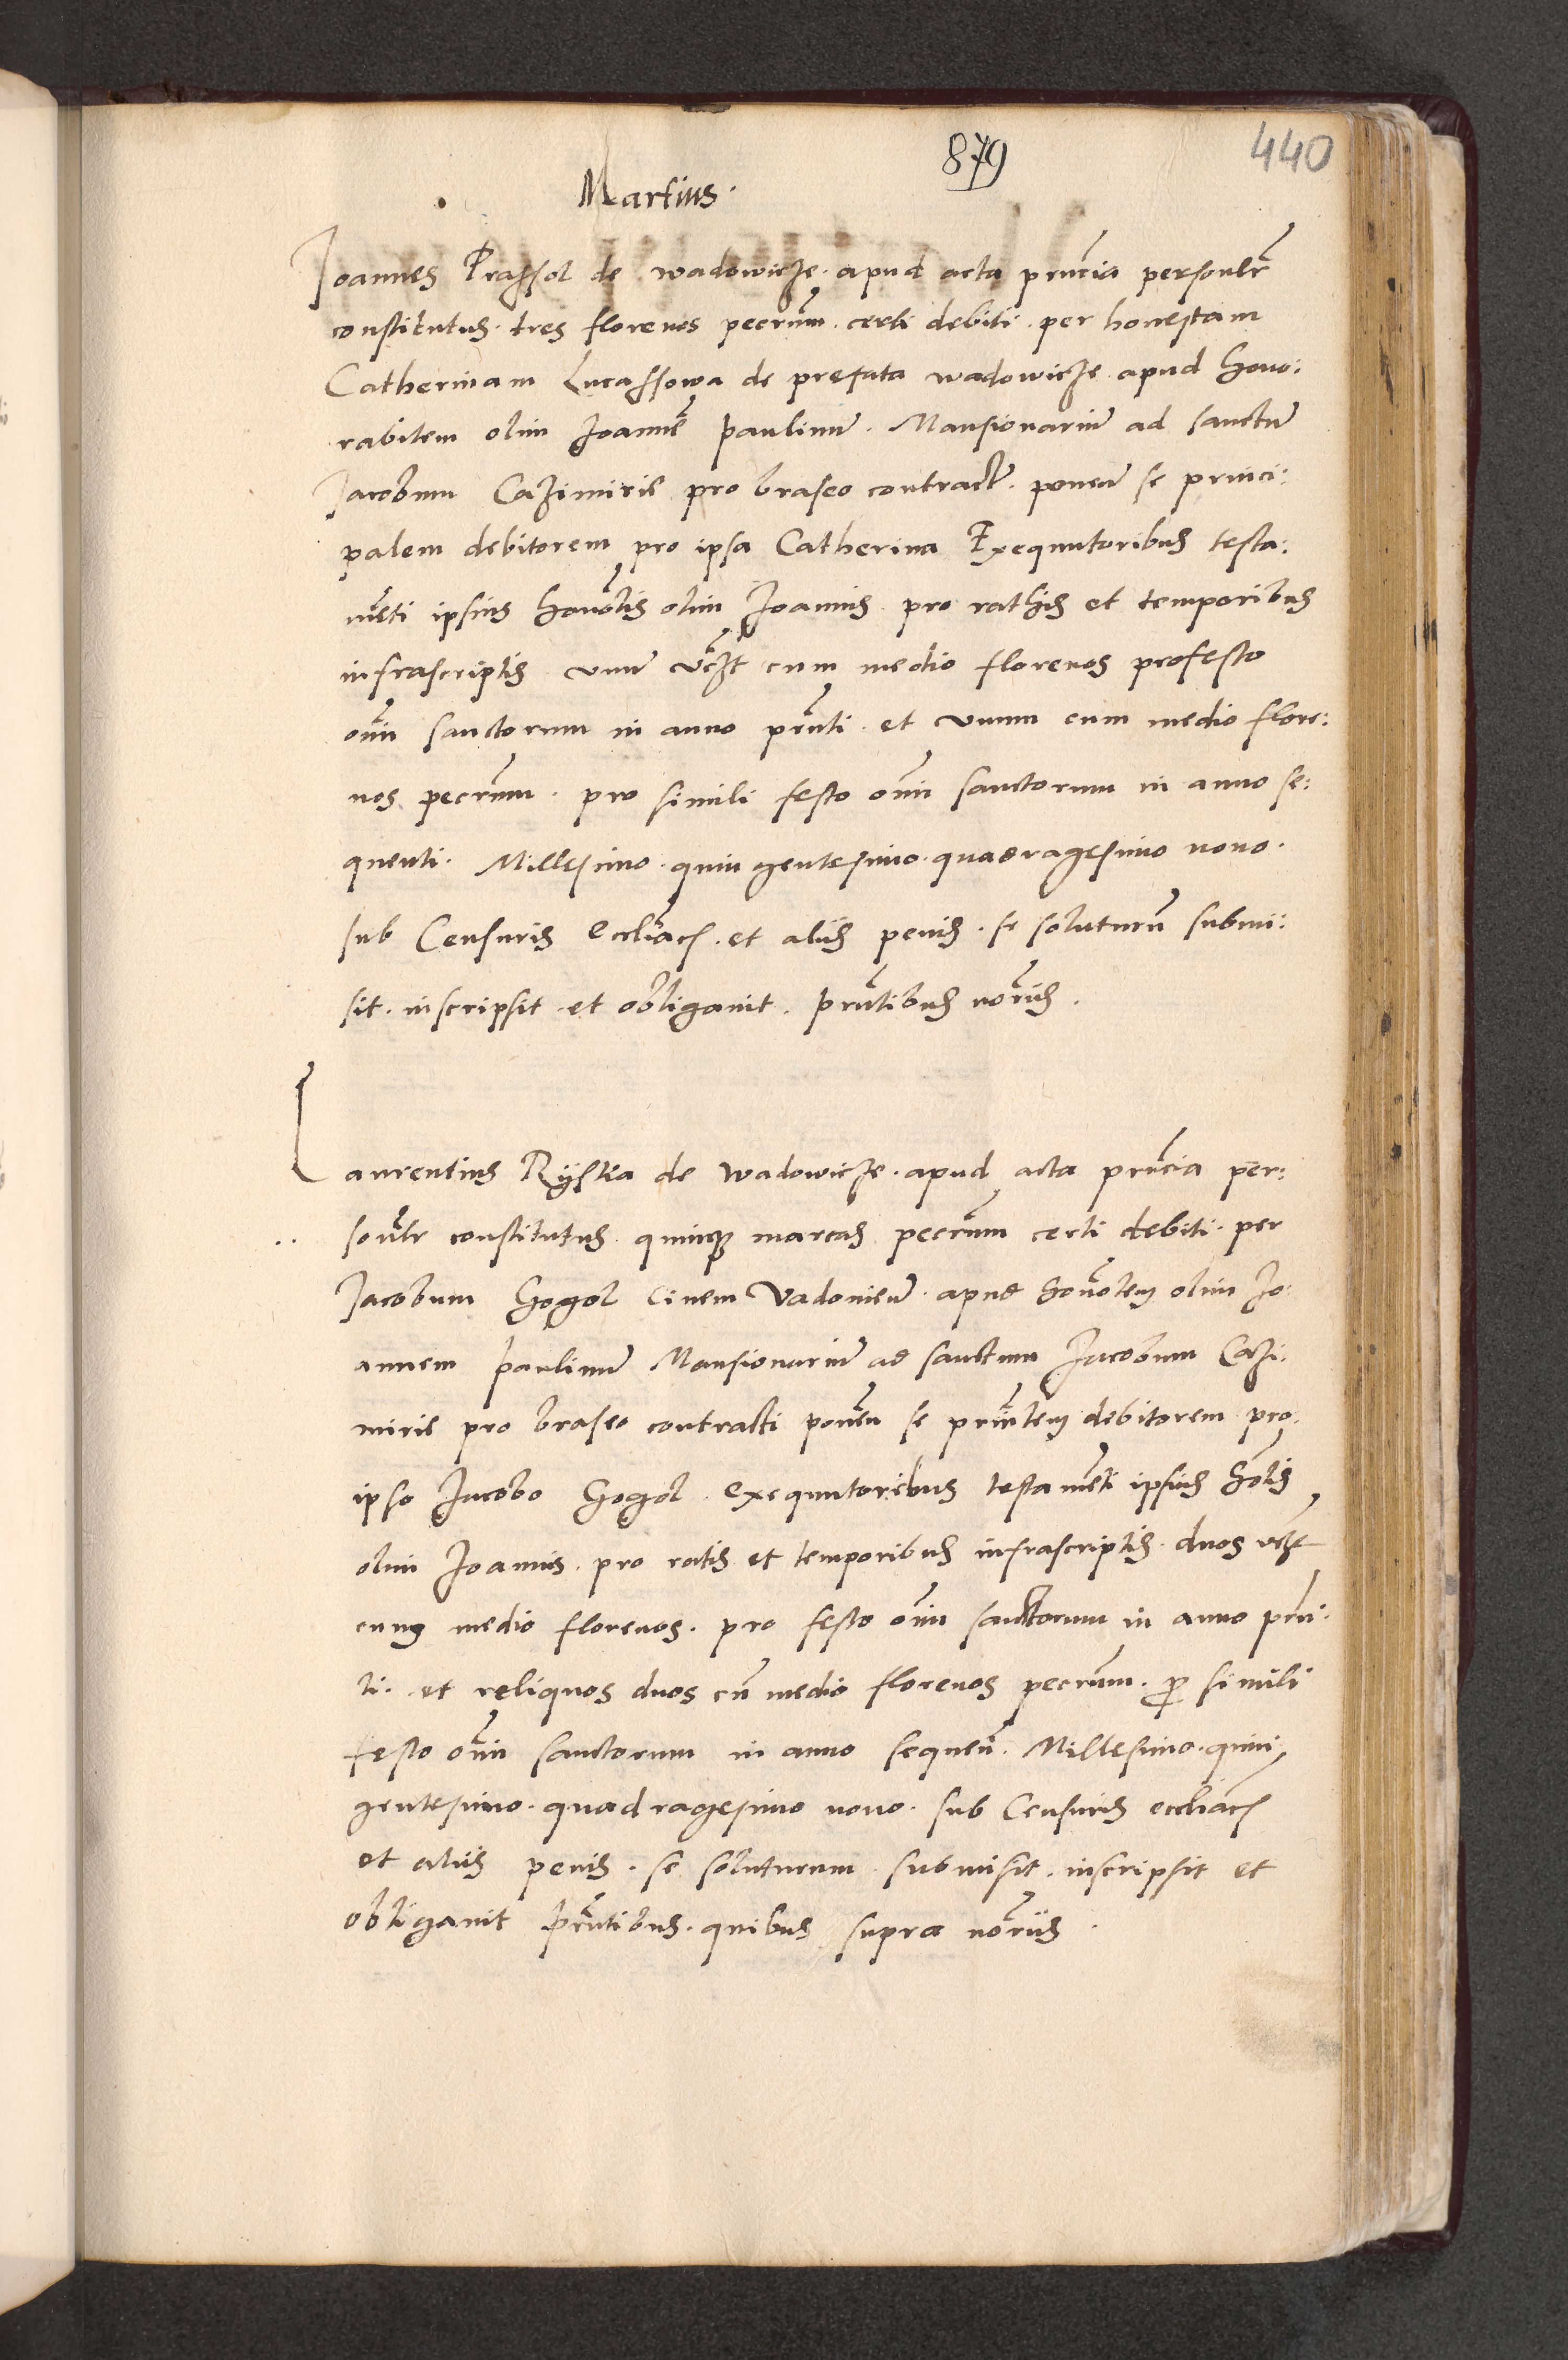 879
440
Martius.
Joannes Prassol de wadowicze. apud acta prncia personlr
constitutus. tres florenos pecrum. certi debiti. per honestam
Catherinam Lucassowa de prefata wadowicze apud hono:
rabilem olim Joanne paulinu. Mansionariu ad sanctu
Jacobum Cazimirie pro braseo contract. ponen se princi:
palem debitorem pro ipsa Catherina Exequutoribus testa:
menti ipsius honolis olim Joannis. pro rathis et temporibus
infrascriptis unu vczt cum medio florenos profesto
oim sanctorum in anno prnti. et unum cum medio flore:
nos pecrum. pro simili festo oim sanctorum in anno se:
quenti. Millesimo. quin gentesimo. quadragesimo nono.
sub Censuris eccliacs. et aliis penis. se soluturu submi:
sit. inscripsit et obligavit. prntibus noriis.
Laurentius Rÿska de wadowicze. apud acta prncia per:
sonlr constitutus. quinqz marcas pecrum certi debiti. per
Jacobum Gogol civem Vadovien. apud honolem olim Jo:
annem paulinu Mansionariu ad sanctum Jacobum Cazi:
mirie pro braseo contracti ponen se prinlem debitorem pro
ipso Jacobo Gogol. exequutoribus testamenti ipsius holis
olim Joannis. pro ratis et temporibus infrascriptis. duos vczt
cum medio florenos. pro festo oim sanctorum in anno prn:
ti. et reliquos duos cu medio florenos pecrum. p simili
festo oim sanctorum in anno sequen. Millesimo. quin:
gentesimo. quadragesimo nono. sub Censuris eccliacs
et aliis penis. se soluturum. submisit. inscripsit et
obligavit prntibus. quibus supra noriis.